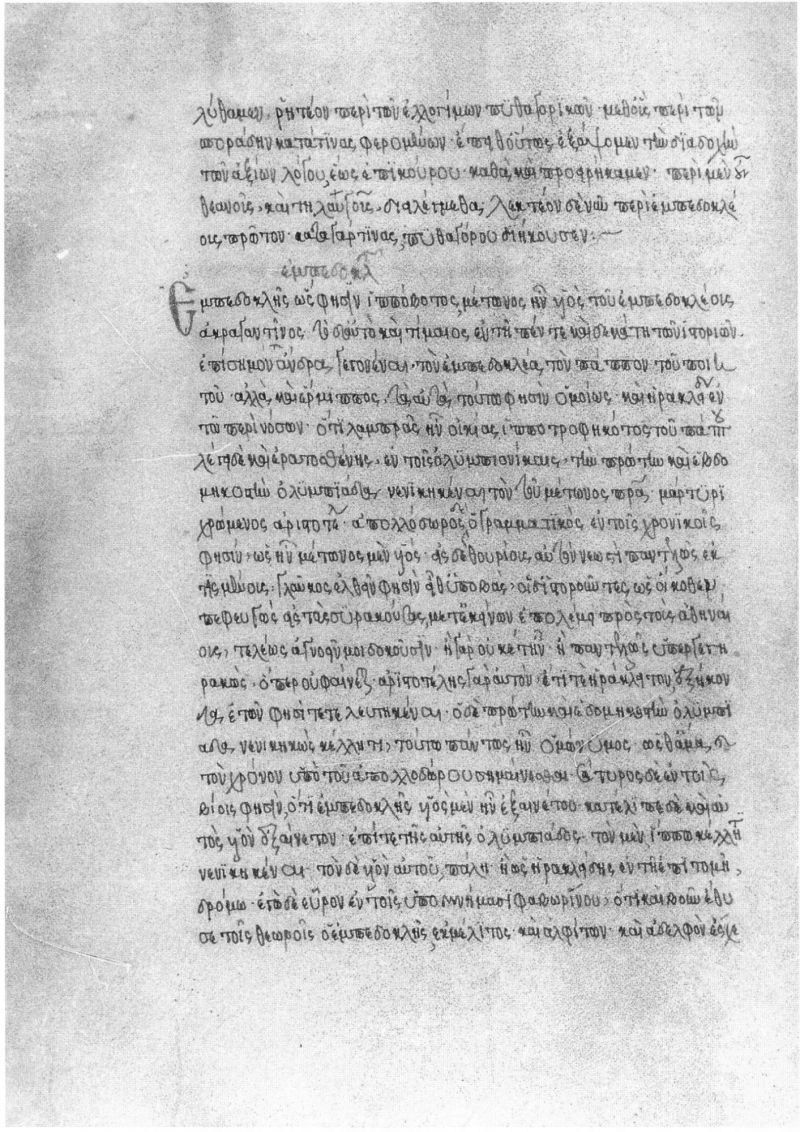 λύθαμεν, ῥητέον περὶ τῶν ἐλλογίμων πυθαγορικῶν· μεθ' οὓς περὶ τῶν
σποράδην κατά τινας φερομένων· ἔπειθ' οὕτως ἐξάψομεν τὴν διαδοχὴν
τῶν ἀξίων λόγου, ἕως ἐπικούρου· καθὰ καὶ προειρήκαμεν· περὶ μὲν οὖν
θεανοῦς, καὶ τηλαυγοῦς, διειλέγμεθα, λεκτέον δὲ νῦν περὶ ἐμπεδοκλέ
ους πρῶτον· κατὰ γάρ τινας, πυθαγόρου διήκουσεν:
ἐμπεδοκλ
Ἐμπεδοκλῆς ὥς φησιν ἱππόβοτος, μέτωνος ἦν υἱὸς τοῦ ἐμπεδοκλέους
ἀκραγαντῖνος· τὸ δ' αὐτὸ καὶ τίμαιος, ἐν τῇ πέντε καὶ δεκάτῃ τῶν ἱστοριῶν·
ἐπίσημον ἄνδρα, γεγονέναι τὸν ἐμπεδοκλέα, τὸν πάππον τοῦ ποιη
τοῦ· ἀλλὰ καὶ ἕρμιππος, τὰ αὐτὰ τούτω φησὶν· ὁμοίως καὶ ἡρακλείδης ἐν
τῶ περὶ νόσων· ὅτι λαμπρᾶς ἦν οἰκίας, ἱπποτροφηκότος τοῦ πάππου
λέγει δὲ καὶ ἐρατοσθένης, ἐν τοῖς ὀλυμπιονίκαις, τὴν πρώτην καὶ ἑβδο
μηκοστὴν ὀλυμπιάδα, νενικηκέναι τὸν τοῦ μέτωνος πρα, μάρτυρι
χρώμενος ἀριστοτέλει· ἀπολλόδωρος δ' ὁ γραμματικὸς ἐν τοῖς χρονικοῖς
φησὶν, ὡς ἦν μέτωνος μὲν υἱός· εἰς δὲ θουρίους, αὐτὸν νεωστὶ παντελῶς ἐκ
τισμένους, γλαῦκος ἐλθεῖν φησὶν· οἱ δ' ἱστοροῦντες, ὡς οἴκοθεν
πεφευγὼς εἰς τὰς συρακούσας, μετ' ἐκείνων ἐπολέμει πρὸς τοὺς ἀθηναί
ους, τελέως ἀγνοεῖν μοι δοκοῦσιν· ἢ γὰρ οὐκέτ' ἦν· ἢ παντελῶς ὑπεργεγη
ρακώς· ὅπερ οὐ φαίνεται· ἀριστοτέλης γὰρ αὐτὸν· ἔτι τε ἡράκλειτον, ἑξήκον
τα, ἐτῶν φησὶ τετελευτηκέναι· ὁ δὲ πρώτην καὶ ἑβδομηκοστὴν ὀλυμπι
άδα, νενικηκὼς κέλητι, τούτου πάππος ἦν ὁμώνυμος, ὥσθ' ἅμα, καὶ
τὸν χρόνον ὑπὸ τοῦ ἀπολλοδώρου σημαίνεσθαι· σάτυρος δὲ ἐν τοῖς
βίοις φησὶν, ὅτι ἐμπεδοκλῆς υἱὸς μὲν ἦν ἐξαινέτου· κατέλιπε δὲ καὶ αὐ
τὸς υἱὸν ἐξαίνετον· ἐπί τε τῆς αὐτῆς ὀλυμπιάδος· τὸν μὲν ἵππω κέλητι
νενικηκέναι· τὸν δὲ υἱὸν αὐτοῦ, πάλη· ἢ ὡς ἡρακλείδης ἐν τῇ ἐπιτομῇ,
δρόμω· ἐγὼ δὲ εὗρον ἐν τοῖς ὑπομνήμασι φαβωρίνου, ὅτι καὶ βοῦν ἔθυ
σε τοῖς θεωροῖς ὁ ἐμπεδοκλῆς, ἐκ μέλιτος· καὶ ἀλφίτων· καὶ ἀδελφὸν ἔσχε